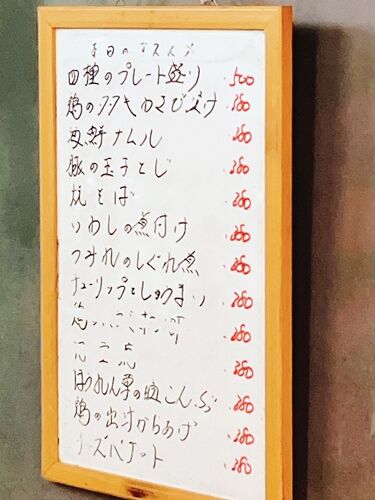 本日のオススメ
四種のプレート盛り .500
鶏のタタキわさび漬け .280
海鮮ナムル .280
豚の玉子とじ .280
焼そば .280
いわしの煮付け .280
つみれのしぐれ煮 .280
チューリップとしゅうまい .280
.280
.280
ほうれん草の塩こんぶ .280
鶏の出汁からあげ .280
チーズバゲット .280